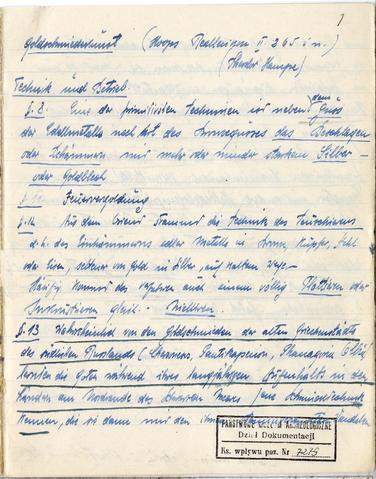 1
Goldschmiedekunst (Hoops Reallexikon II 265 f.n.)
(Theodor Hampe)
Technik und Betrieb.
§. 8. Eine der primitivsten Techniken ist neben dem Guss
der Edelmetalle nach Art des Bronzegusses das Beschlagen
oder mit mehr oder minder starkem Silber-
oder Goldblech
Feuervergoldung
§. 12 Aus dem Orient stammt die Technik des Tauschierens
d.h. des Einhämmerns edler Metalle in Bronze, Kupfer, Stahl
oder Eisen, seltener von Gold in Silber, auf kaltem Wege.
Häufig kommt das auch einem völlig Plattieren oder
Inkrustieren gleich. Niellieren.
§. 13 Wahrscheinlich von den Goldschmieden der alten Griechenstädte
des südlichen Russlands (Chersones, Pantikapaeum, Phanagoria, Olbia)
die Goten während ihres langjährigen Aufenthalts in den
Ländern am Nordrande des Schwarzen Meers jene Schmiedetechnik
kennen, die sie dann mit den ihnen
PAŃSTWOWE MUZEUM ARCHEOLOGICZNE
Dział Dokumentacji
Ks. wpływu poz. Nr 7275